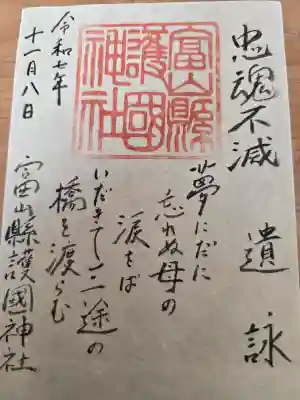 忠魂不滅
遺詠
夢にだに
忘れぬ母の
涙をば
いだきて三途の
橋を渡らむ
富山縣護國神社
令和七年
十一月八日
富山縣
護國
神社